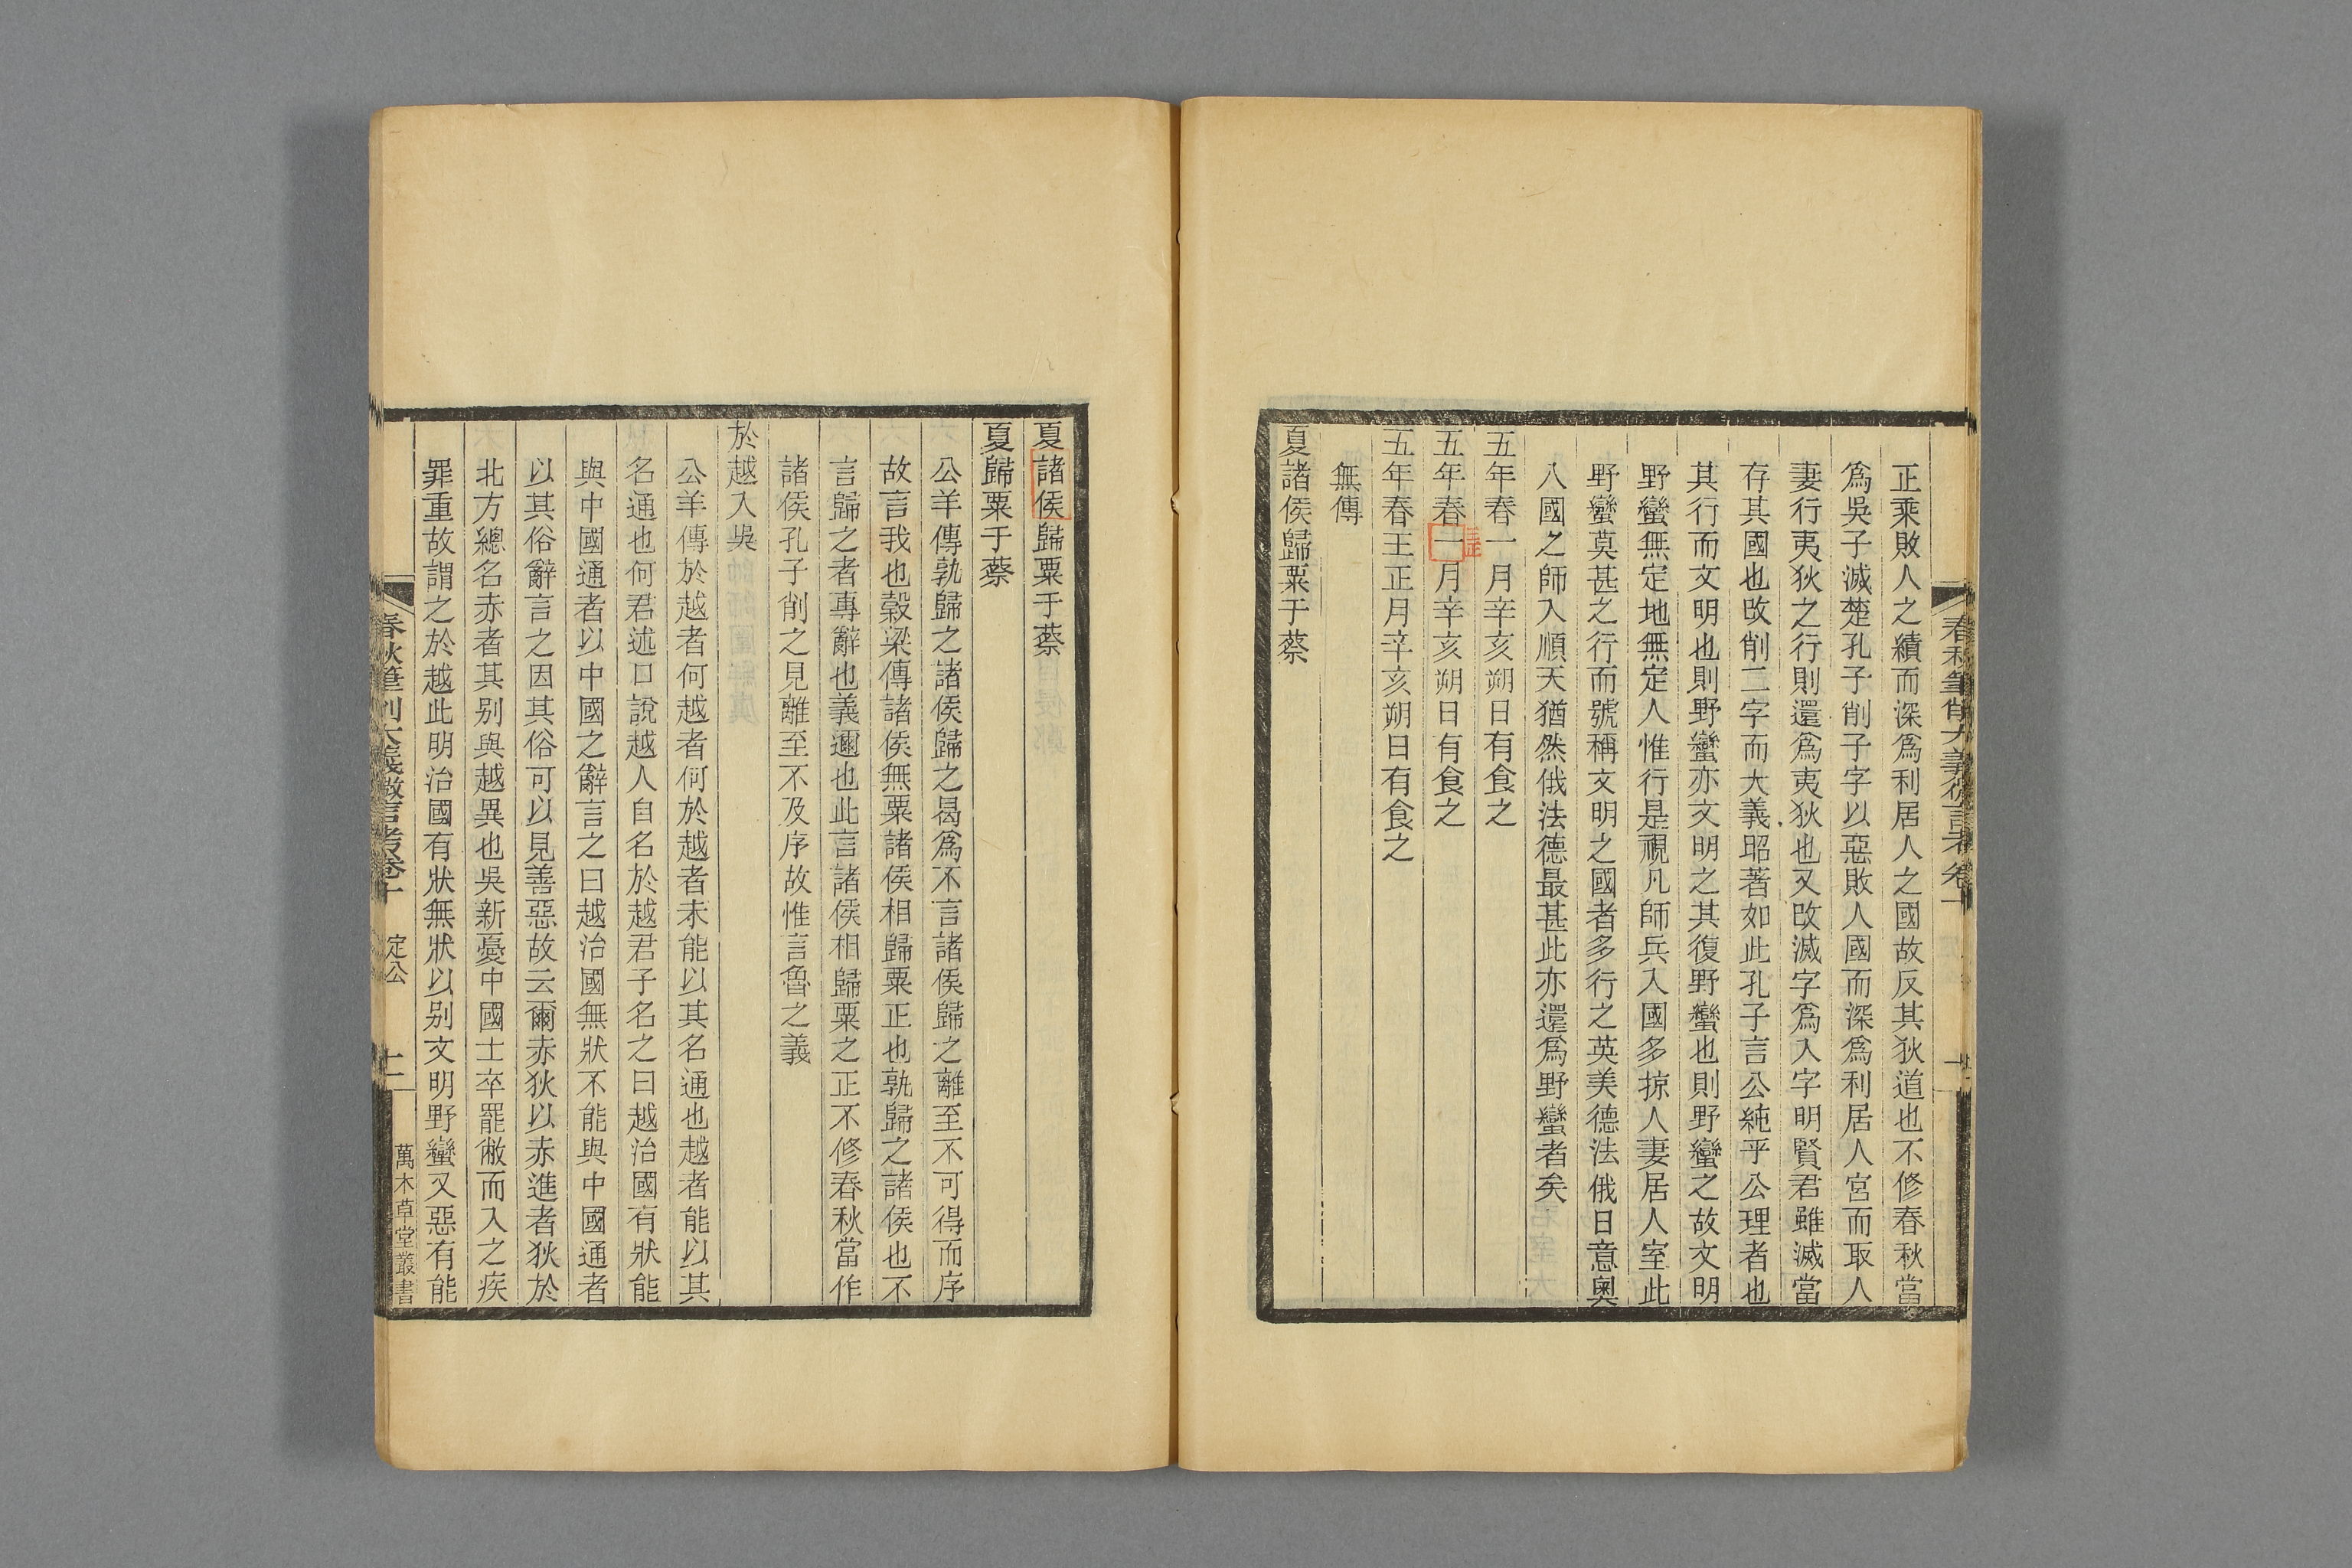 春秋筆削大義微言考卷十
正乘敗人之績而深爲利居人之國故反其狄道也不修春秋當
爲吳子滅楚孔子削子字以惡敗人國而深爲利居人宮而取人
妻行夷狄之行則還爲夷狄也又改滅字爲入字明賢君雖滅當
存其國也改削二字而大義昭著如此孔子言公純乎公理者也
其行而文明也則野蠻亦文明之其復野蠻也則野蠻之故文明
野蠻無定地無定人惟行是視凡師兵入國多掠人妻居人室此
野蠻莫甚之行而號稱文明之國者多行之英美德法俄日意奧
八國之師入順天猶然俄法德最甚此亦還爲野蠻者矣
五年春一月辛亥朔日有食之
五年春一月辛亥朔日有食之
王正
五年春王正月辛亥朔日有食之
無傳
夏諸侯歸粟于蔡
夏諸侯歸粟于蔡
夏歸粟于蔡
公羊傳孰歸之諸侯歸之曷爲不言諸侯歸之離至不可得而序
故言我也穀梁傳諸侯無粟諸侯相歸粟正也孰歸之諸侯也不
言歸之者專辭也義邇也此言諸侯相歸粟之正不修春秋當作
諸侯孔子削之見離至不及序故惟言魯之義
於越入吳
公羊傳於越者何越者何於越者未能以其名通也越者能以其
名通也何君述口說越人自名於越君子名之曰越治國有狀能
與中國通者以中國之辭言之曰越治國無狀不能與中國通者
以其俗辭言之因其俗可以見善惡故云爾赤狄以赤進者狄於
北方總名赤者其别與越異也吳新憂中國士卒罷敝而入之疾
罪重故謂之於越此明治國有狀無狀以别文明野蠻又惡有能
春秋筆削大義微言考卷十
定公
十二
萬木草堂叢書